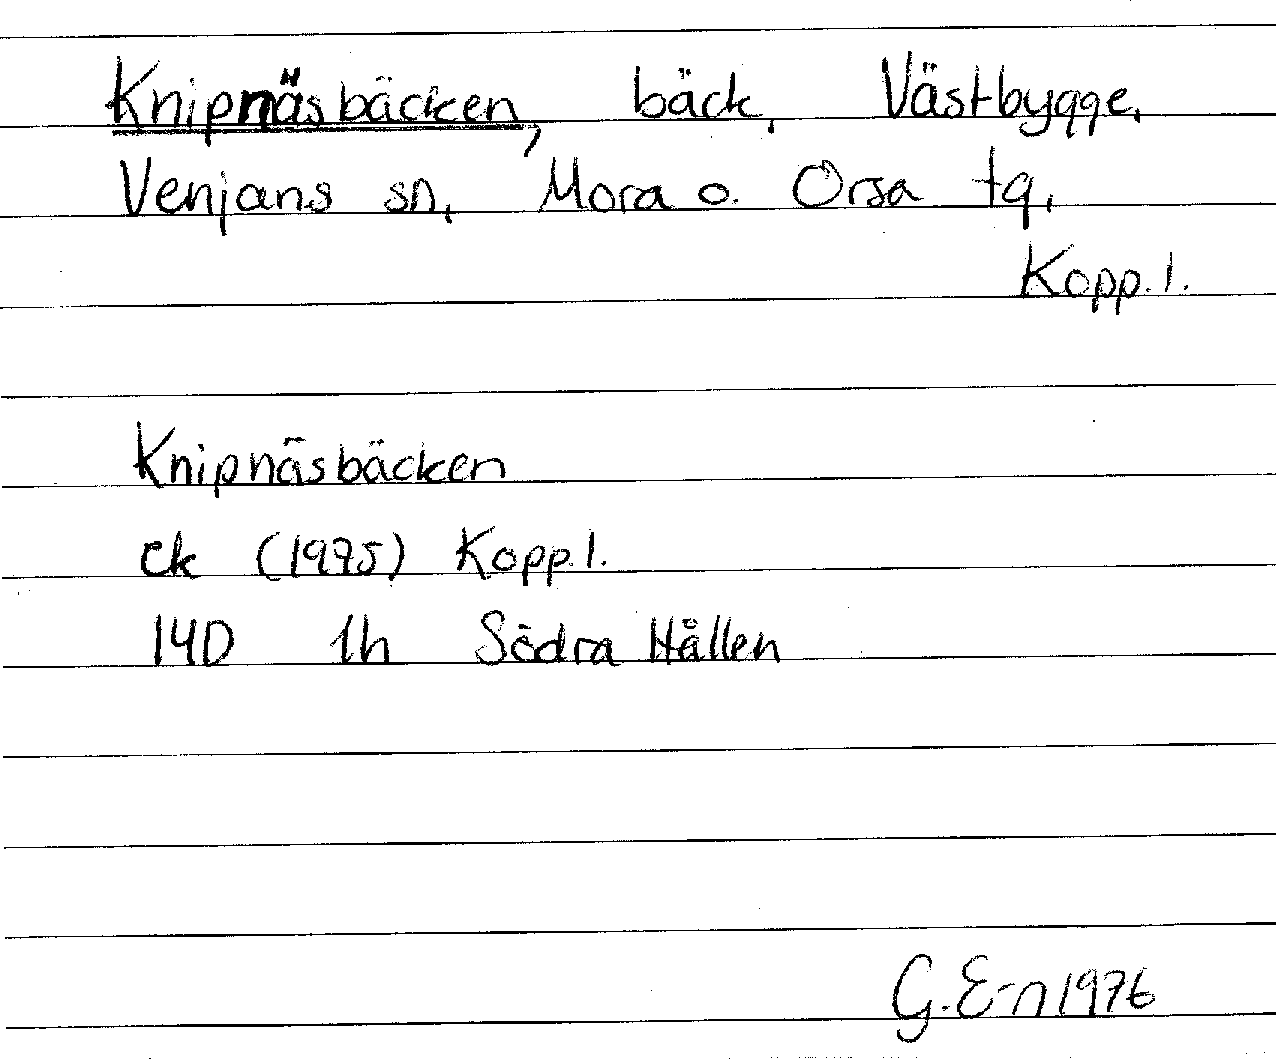 Knipnäsbäcken, bäck, Västbygge,
Venjans sn, Mora o. Orsa tg,
Kopp. l.
Knipnäsbäcken
ek (1975) Kopp. l.
14D 1h Södra Hållen
G. E-n 1976